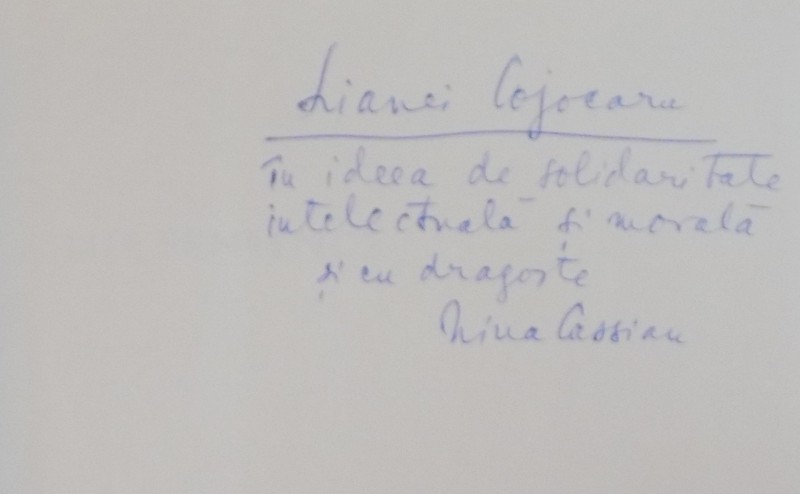 Lianei Cojocaru
în ideea de solidaritate
intelectuală și morală
și cu dragoste
Nina Cassian